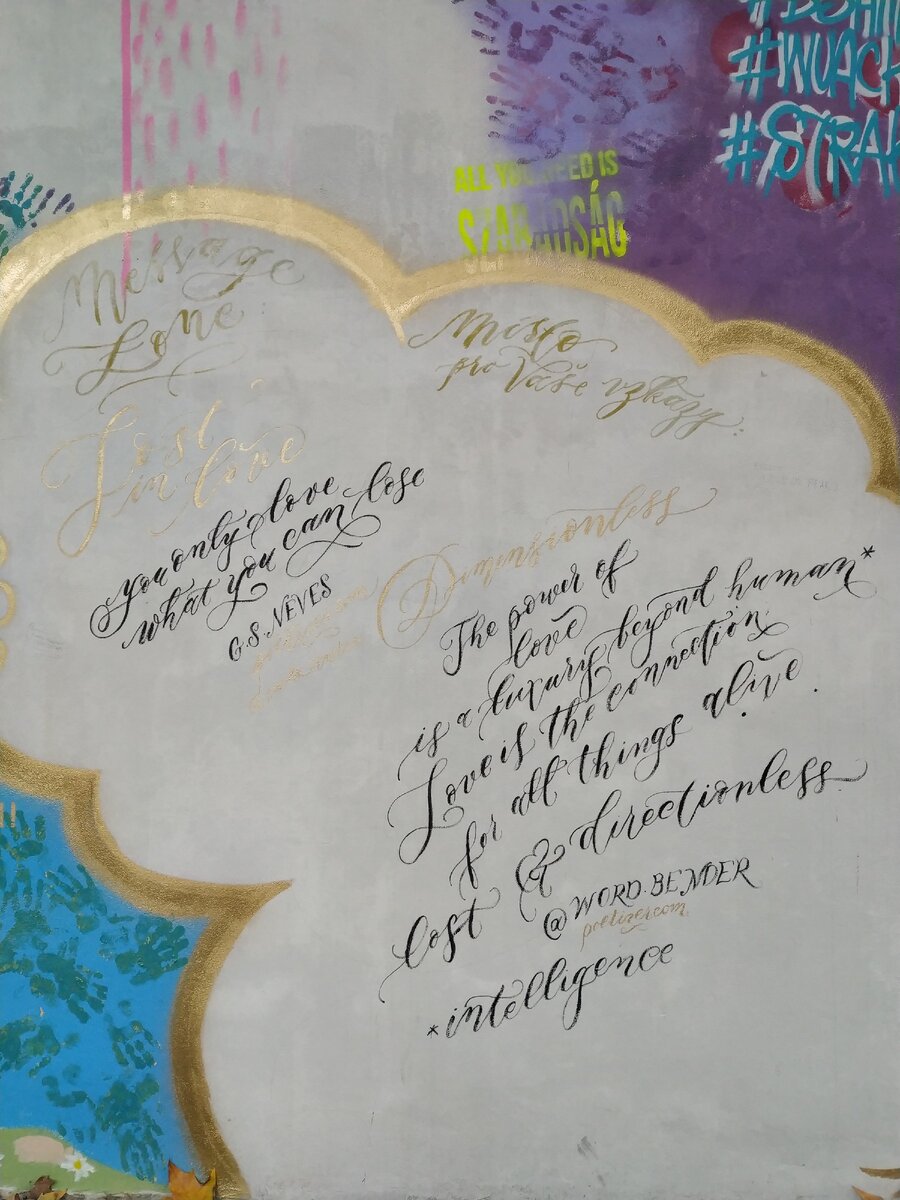 #WUACK
#STRAK
ALL YOU NEED IS
SZABADSÁG
Message
Lone
Místo
pro Vaše vzkazy:
Lost
in love
you only love
what you can lose
G.S. NEVES
Dimensionless
The power of
love
is a luxury beyond human*
Love is the connection
for all things alive.
lost & directionless
@WORD.BENDER
poetizer.com
*intelligence